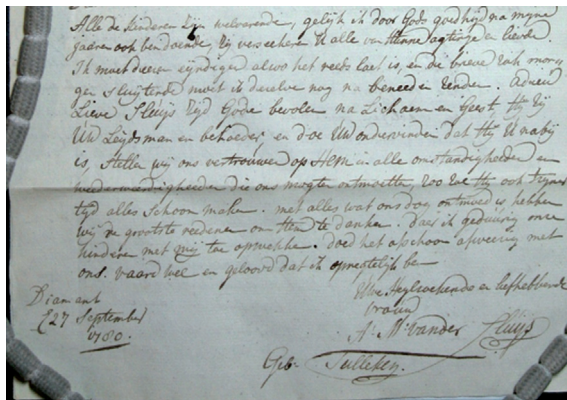 Alle de kinderen zijn welvarende, gelijk ik door Gods goedhijd na myne
Jaaren ook ben doende, zij verseekere U alle van Hunne agtinge en liefde.
Ik moet deesen eyndigen alwo het reeds laet is, en de brieve zak mor-
gen sluytende moet ik deselve nog na beneeden zenden. Adieu
Lieve Sluijs zijd Gode bevolen na Lichaem en Geest, Hy zij
UW Leijdsman en behoeder, en doe UW ondervinden dat Hy U nabij
is, stellen wij ons vertrouwen op Hem in alle omstandigheeden en
wederwaardigheeden die ons mogten ontmoetten, zoo zal Hy ook tzyner
tijd alles schoon maken. met alles wat ons dog ontmoed is hebben
wij de grootste redenen om Hem te danken. Daer ik geduurig onse
kinderen met mij toe opwekke. Doed het ofschoon afweezig met
ons. vaard wel en geloovd dat ik opregtelijk ben
Uwe Heylwenschende en liefhebbende
vrouw
A: M: vander Sluijs
Geb: Tulleken.
Diamant
27 September
1780.